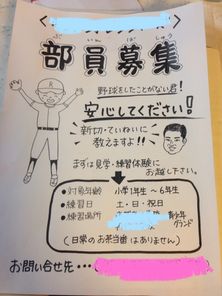 ぶ いん ぼ しゅう
部員募集
野球をしたことがない君!
安心してください!
親切・ていねいに
教えますよ!!
まずは見学・練習体験に
お越し下さい。
• 対象年齢 小学1年生～6年生
• 練習日 土・日・祝日
• 練習場所 青少年
グランド
(日常のお茶当番はありません)
お問い合せ先・・・